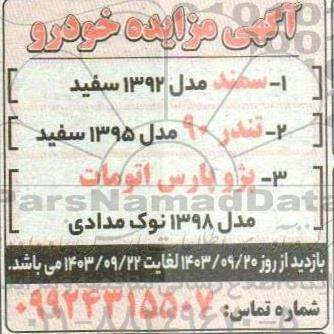 آگهی مزایده خودرو
۱- سمند مدل ۱۳۹۲ سفید
۲- تندر ۹۰ مدل ۱۳۹۵ سفید
۳- پژو پارس اتومات
مدل ۱۳۹۸ نوک مدادی
بازدید از روز ۱۴۰۳/۰۹/۲۰ لغایت ۱۴۰۳/۰۹/۲۲ می باشد.
شماره تماس: ۰۹۹۲۴۳۱۵۵۰۷
ParsNamadData